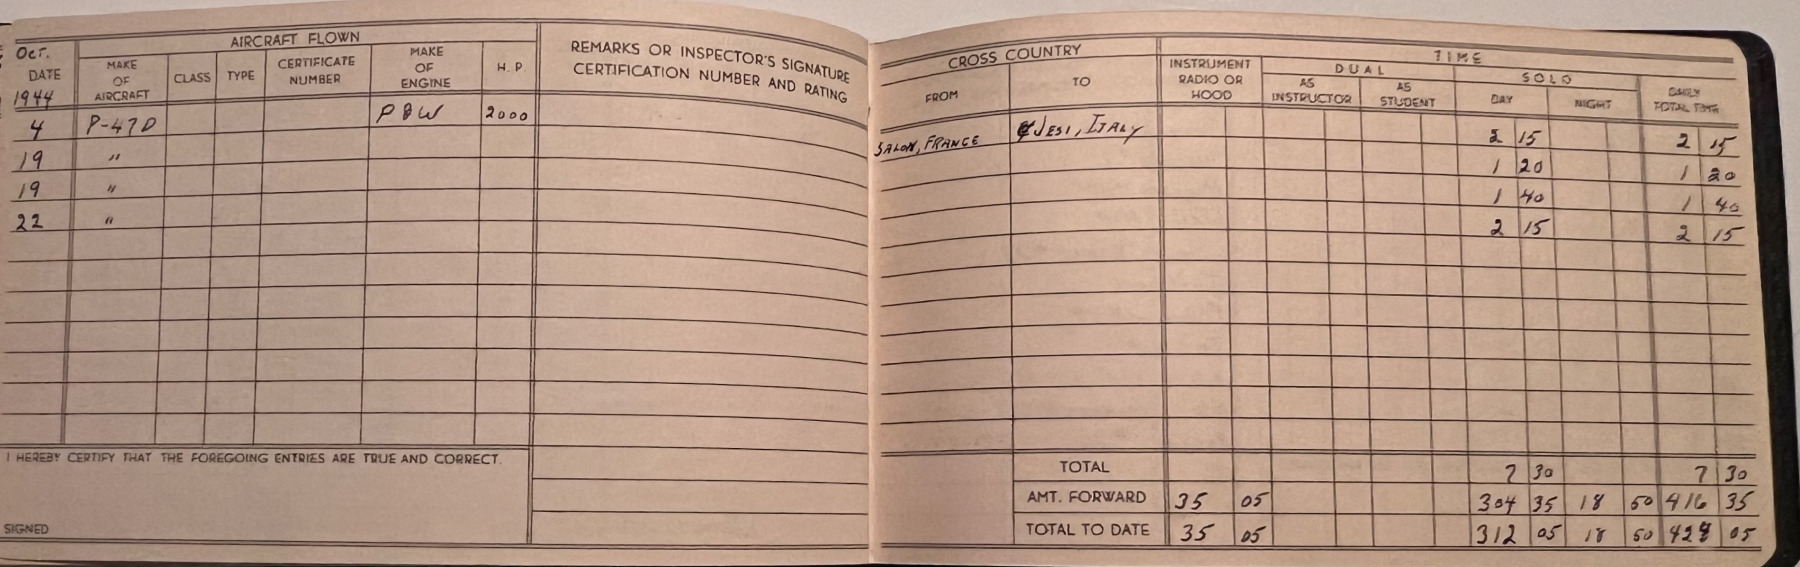 Oct.
AIRCRAFT FLOWN
DATE
MAKE OF AIRCRAFT
CLASS
TYPE
CERTIFICATE NUMBER
MAKE OF ENGINE
H. P
REMARKS OR INSPECTOR'S SIGNATURE
CERTIFICATION NUMBER AND RATING
1944
4 P-47D P&W 2000
19 "
19 "
22 "
I HEREBY CERTIFY THAT THE FOREGOING ENTRIES ARE TRUE AND CORRECT.
SIGNED
CROSS COUNTRY
FROM
TO
INSTRUMENT RADIO OR HOOD
TIME
DUAL
AS INSTRUCTOR
AS STUDENT
SOLO
DAY
NIGHT
DAILY TOTAL TIME
SALON, FRANCE JESI, ITALY 2 15 2 15
1 20 1 20
1 40 1 40
2 15 2 15
TOTAL 7 30 7 30
AMT. FORWARD 35 05 304 35 18 50 416 35
TOTAL TO DATE 35 05 312 05 18 50 05